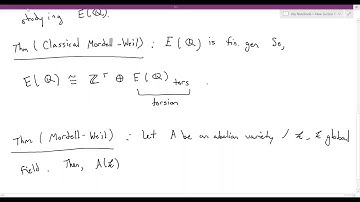 studying E(ℚ).
Thm (Classical Mordell-Weil): E(ℚ) is fin. gen So,
E(ℚ) ≅ ℤʳ ⊕ E(ℚ)tors .
torsion
Thm (Mordell-Weil): Let A be an abelian variety / k, k global
field. Then, A(k)